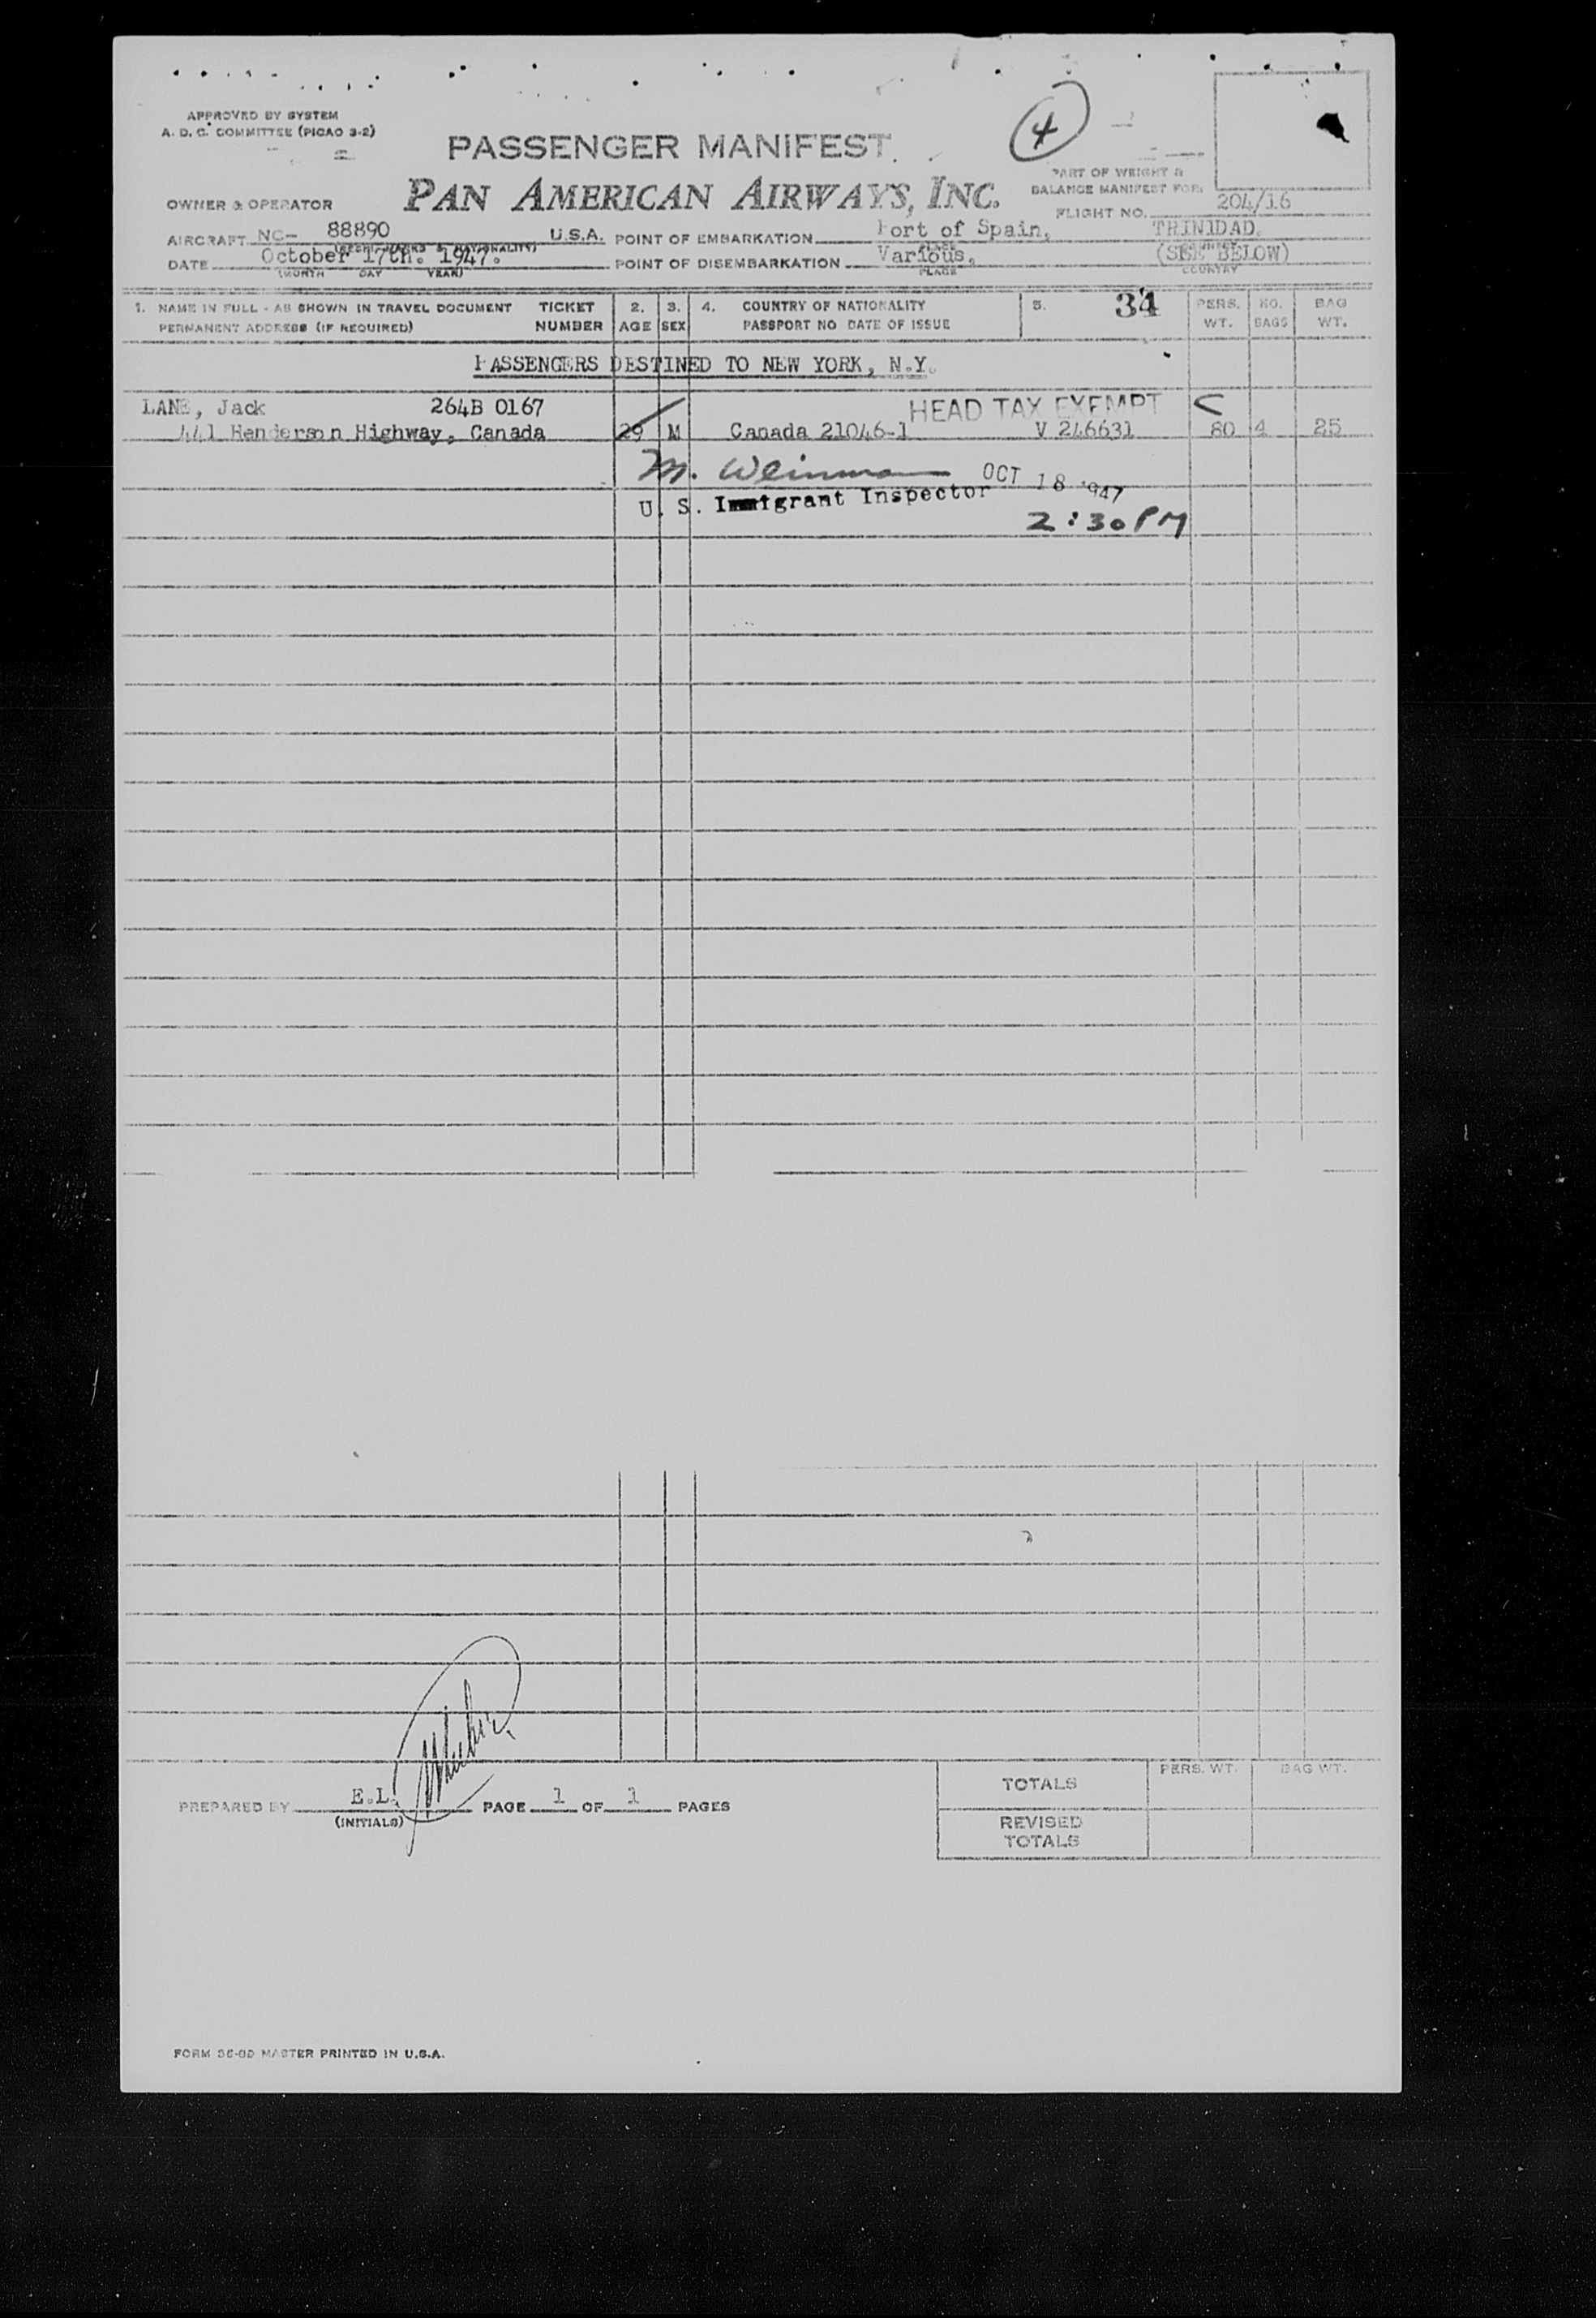 APPROVED BY SYSTEM
A. D. C. COMMITTEE (PICAO 3-2)
PASSENGER MANIFEST
4
PART OF WEIGHT &
BALANCE MANIFEST FOR
OWNER & OPERATOR
PAN AMERICAN AIRWAYS, INC.
FLIGHT NO. 204/16
AIRCRAFT NC- 88890 U.S.A. POINT OF EMBARKATION Port of Spain, TRINIDAD.
PLACE COUNTRY
DATE October 17th. 1947. POINT OF DISEMBARKATION Various. (SEE BELOW)
(MONTH DAY YEAR) PLACE COUNTRY
1. NAME IN FULL - AS SHOWN IN TRAVEL DOCUMENT TICKET 2. 3. 4. COUNTRY OF NATIONALITY 5. 34 PERS. NO. BAG
PERMANENT ADDRESS (IF REQUIRED) NUMBER AGE SEX PASSPORT NO DATE OF ISSUE WT. BAGS WT.
PASSENGERS DESTINED TO NEW YORK, N.Y.
LANE, Jack 264B 0167 HEAD TAX EXEMPT
441 Henderson Highway, Canada 29 M Canada 21046-1 V 246631 80 4 25
M. Weinman OCT 18 1947
U. S. Immigrant Inspector
2:30 PM
PREPARED BY E.L. PAGE 1 OF 1 PAGES
(INITIALS)
PERS. WT. BAG WT.
TOTALS
REVISED
TOTALS
FORM 36-8D MASTER PRINTED IN U.S.A.